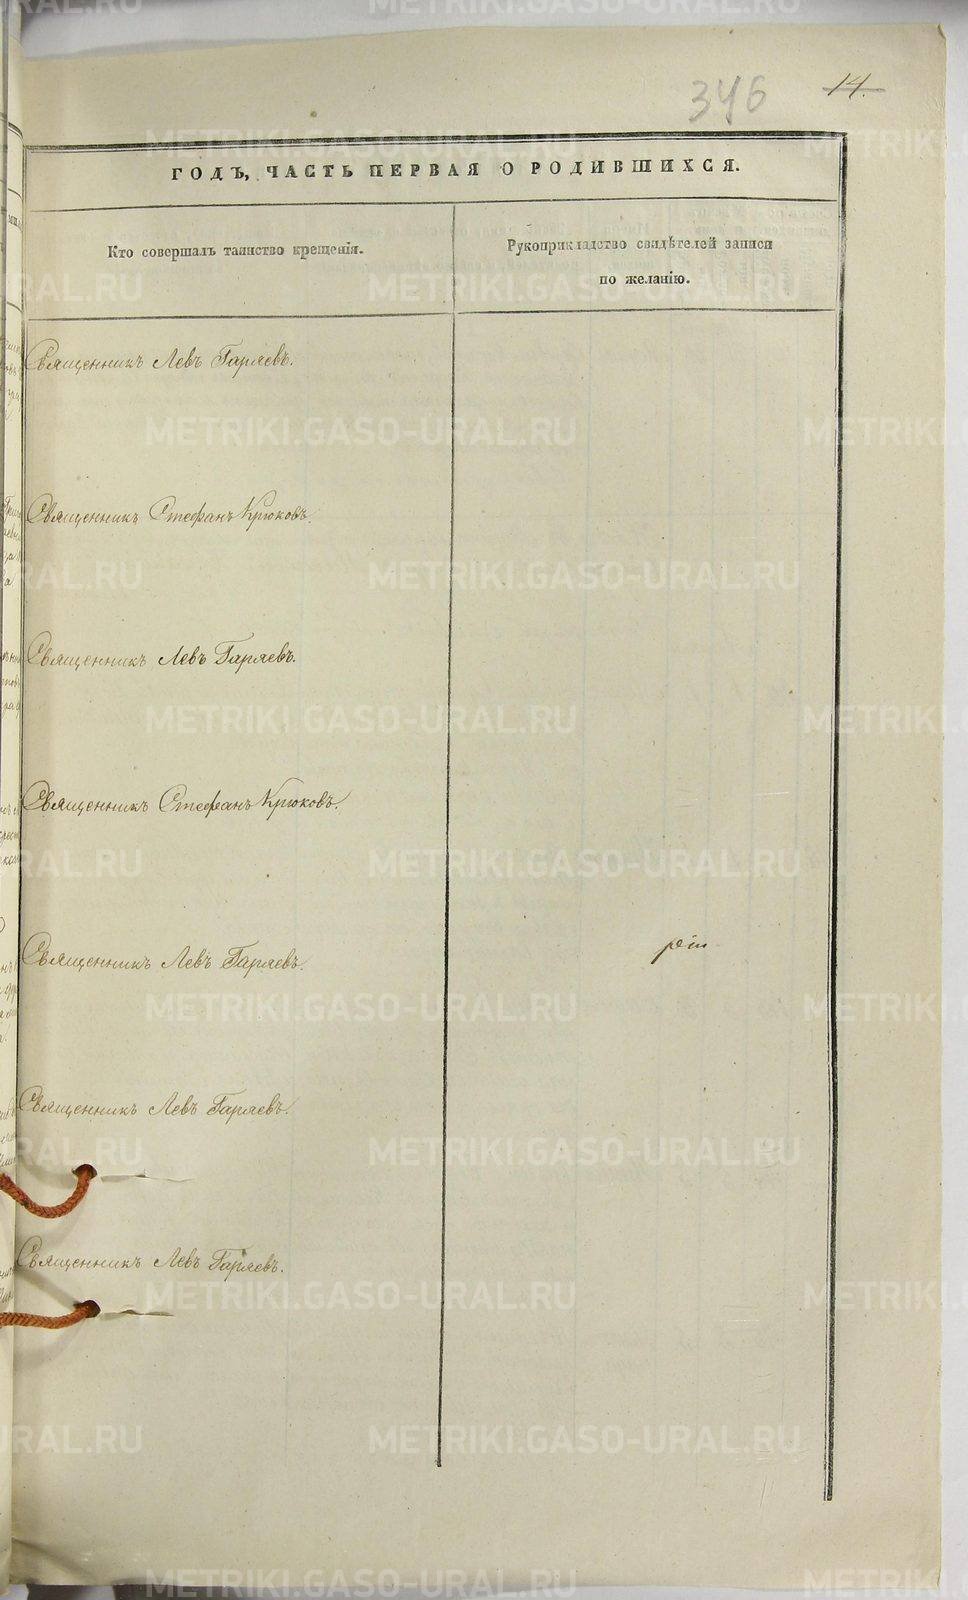 346
14.
ГОДЪ, ЧАСТЬ ПЕРВАЯ О РОДИВШИХСЯ.
Кто совершалъ таинство крещенія.
Рукоприкладство свидѣтелей записи
по желанію.
Священникъ Левъ Гаряевъ.
Священникъ Стефанъ Крюковъ.
Священникъ Левъ Гаряевъ.
Священникъ Стефанъ Крюковъ.
Священникъ Левъ Гаряевъ.
Священникъ Левъ Гаряевъ.
Священникъ Левъ Гаряевъ.
METRIKI.GASO-URAL.RU